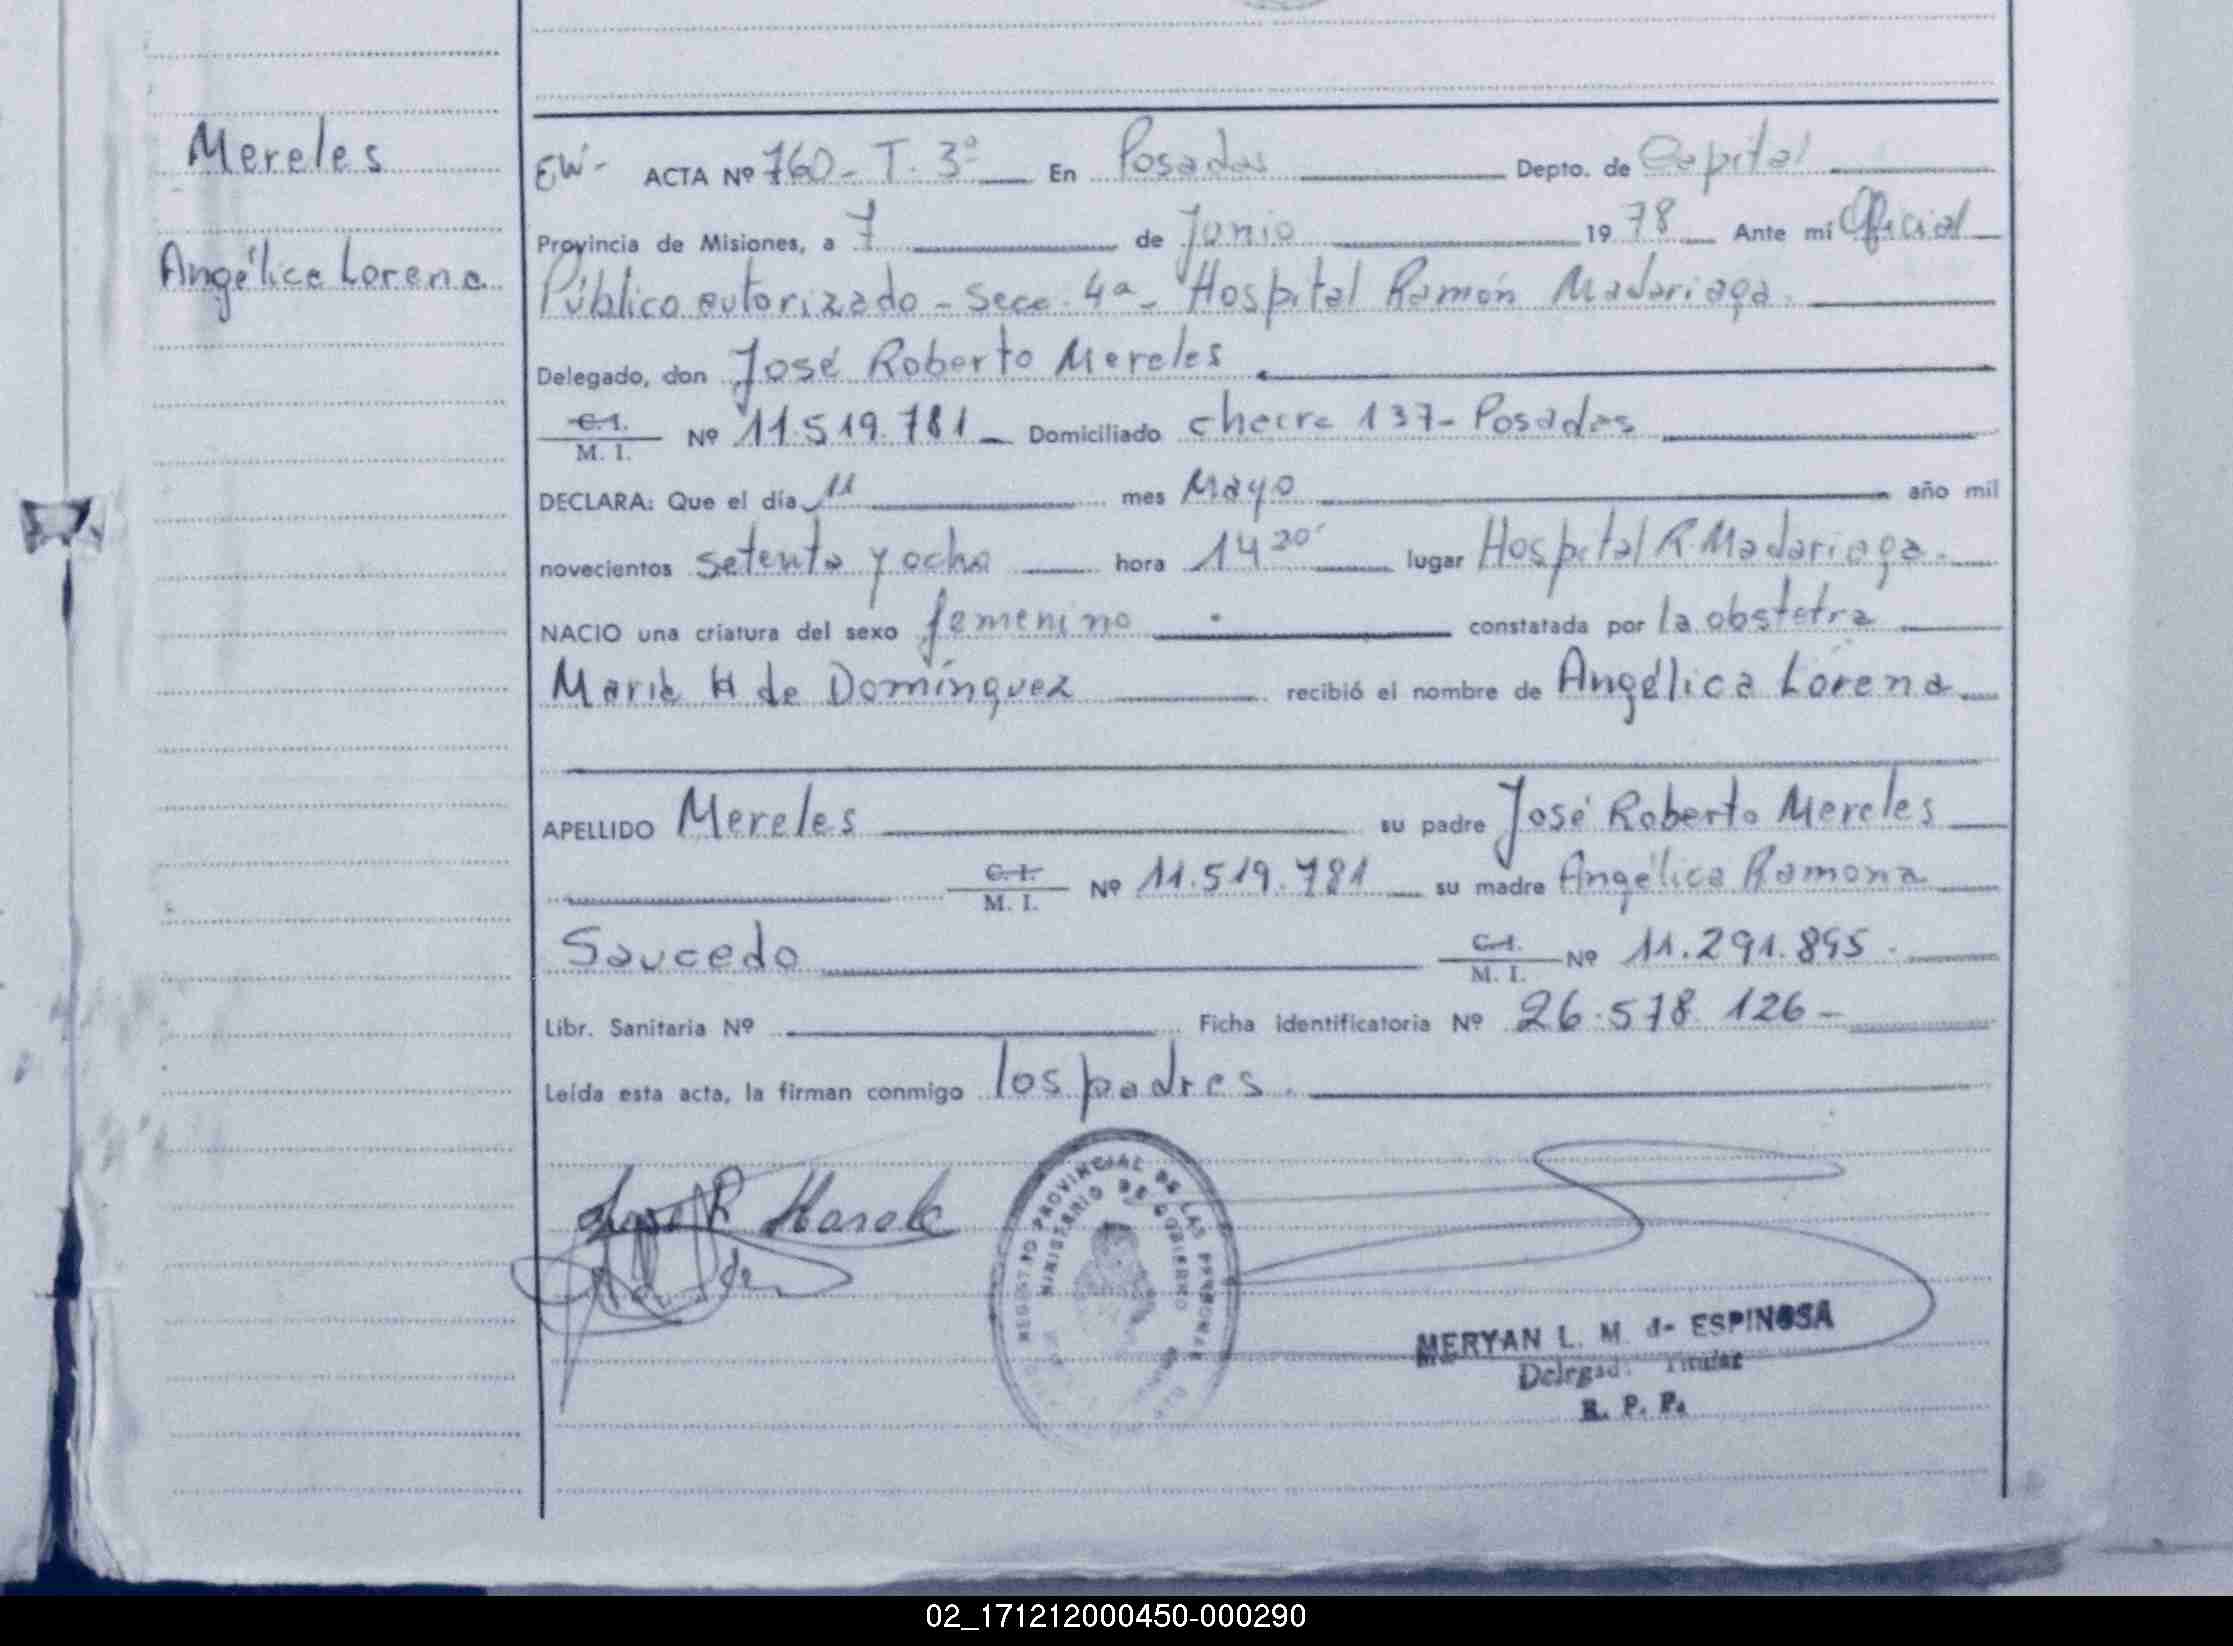 Mereles
Angélica Lorena
EW- ACTA Nº 760- T. 3º En Posadas Depto. de Capital
Provincia de Misiones, a 7 de Junio 1978 Ante mí Oficial
Público autorizado - Secc. 4ª - Hospital Ramón Madariaga.
Delegado, don José Roberto Mereles
C. I.
M. I. Nº 11.519.781 Domiciliado chacra 137- Posadas
DECLARA: Que el día 11 mes Mayo año mil
novecientos setenta y ocho hora 14 lugar Hospital R. Madariaga.
NACIO una criatura del sexo femenino constatada por la obstetra
María H de Domínguez recibió el nombre de Angélica Lorena
APELLIDO Mereles su padre José Roberto Mereles
C. I.
M. I. Nº 11.519.781 su madre Angélica Ramona
Saucedo C. I.
M. I. Nº 11.291.895.
Libr. Sanitaria Nº Ficha identificatoria Nº 26.578.126-
Leída esta acta, la firman conmigo los padres.
REGISTRO PROVINCIAL DE LAS PERSONAS
MINISTERIO DE GOBIERNO
MERYAN L. M. de ESPINOSA
Delegada Titular
R. P. P.
02_171212000450-000290